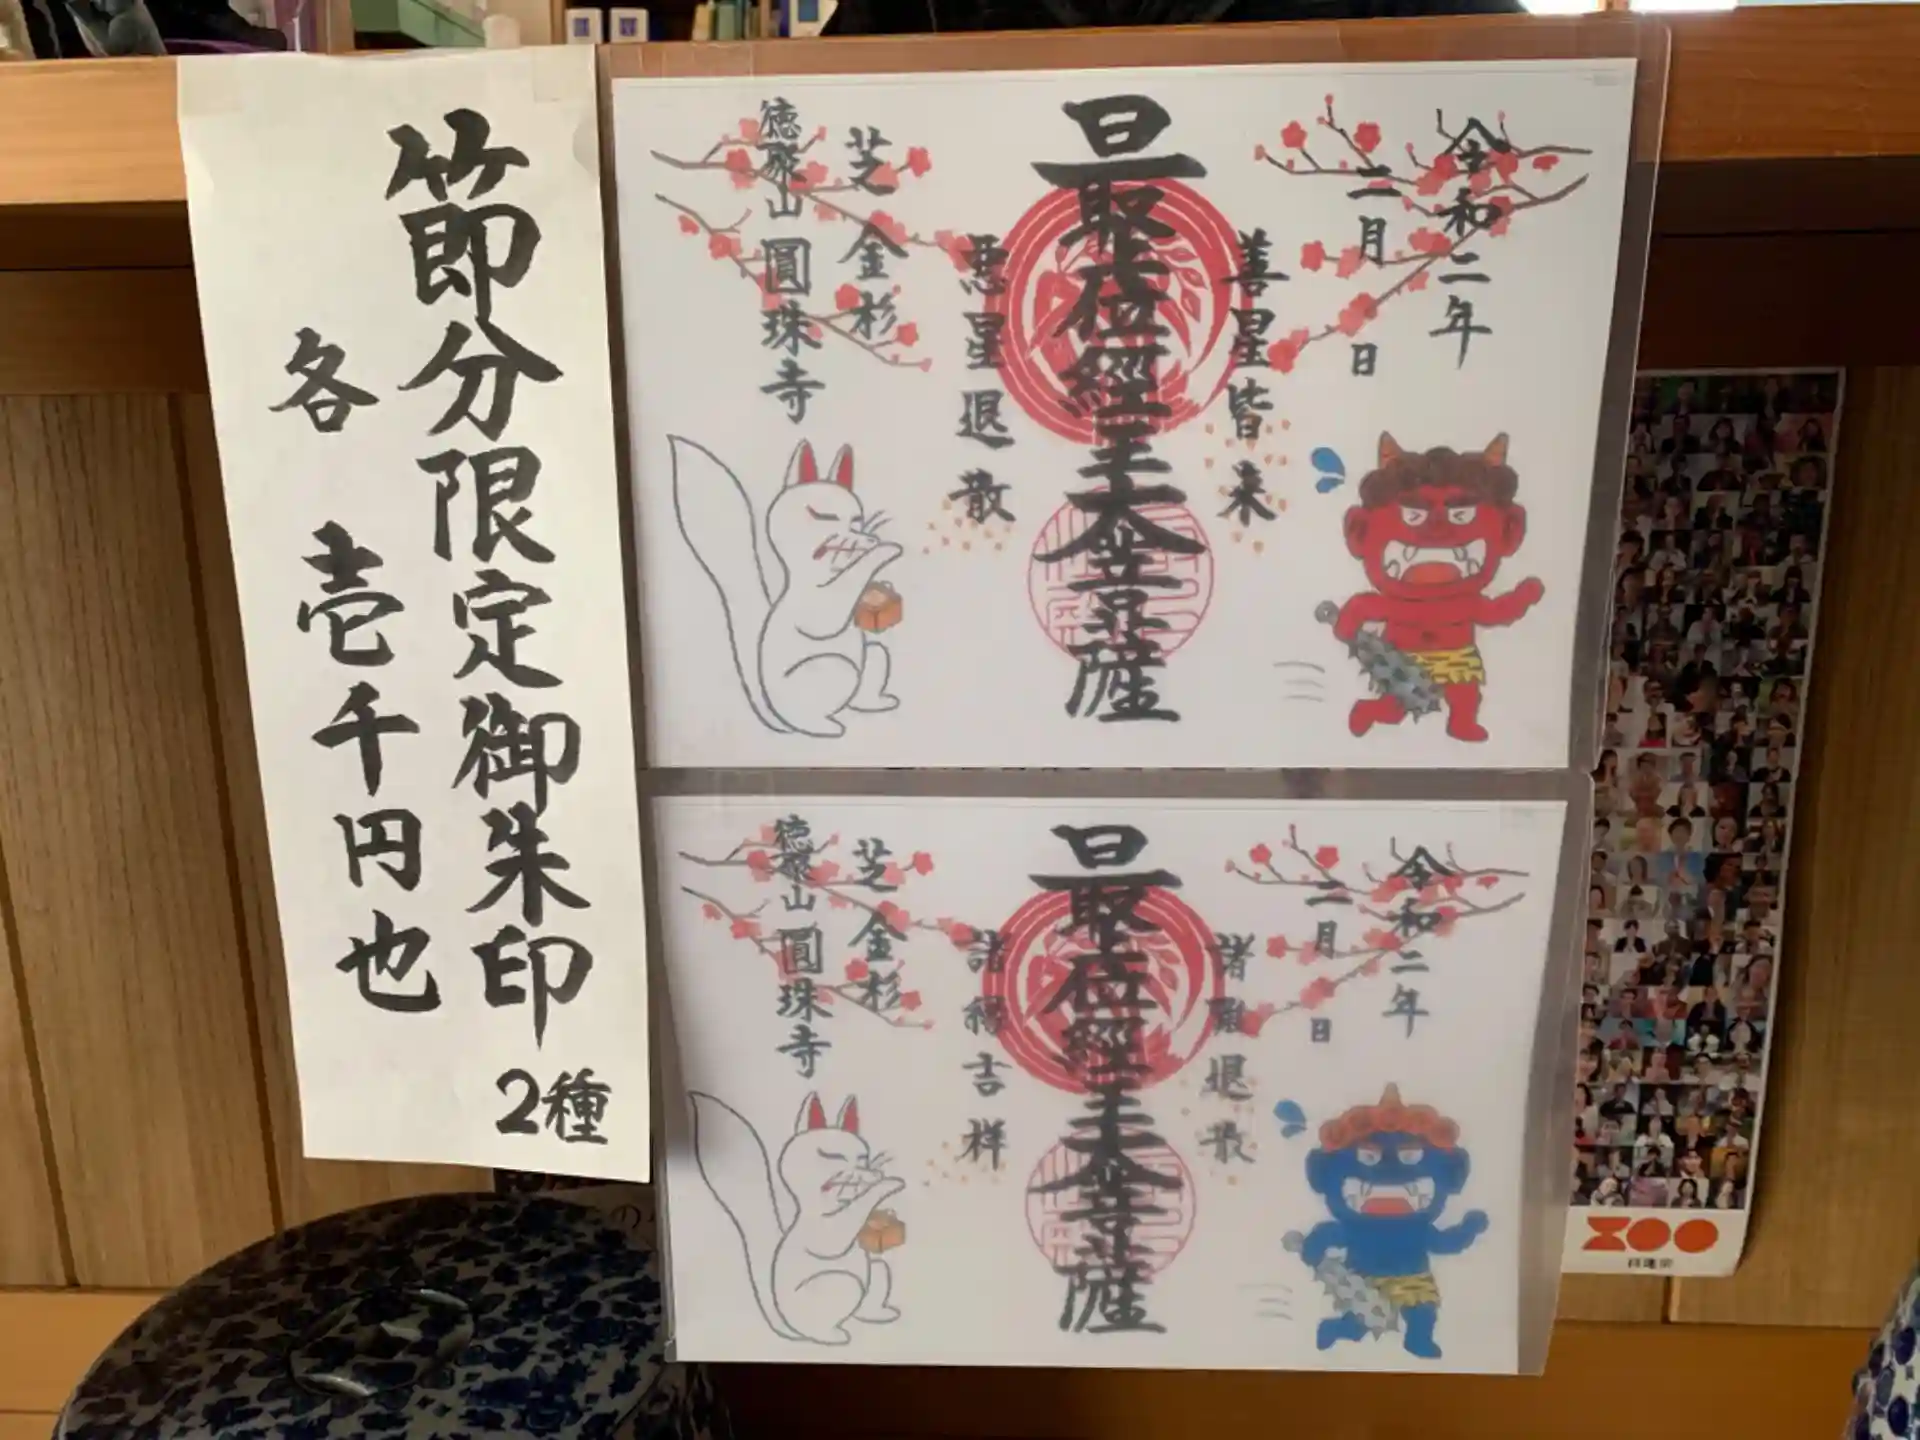 節分限定御朱印
2種
各 壱千円也
令和二年
二月 日
善星皆来
最上位經王大善菩薩
悪星退散
芝 金杉
徳聚山 圓珠寺
令和二年
二月 日
諸難退散
最上位經王大善菩薩
諸縁吉祥
芝 金杉
徳聚山 圓珠寺
ZOO
日蓮宗